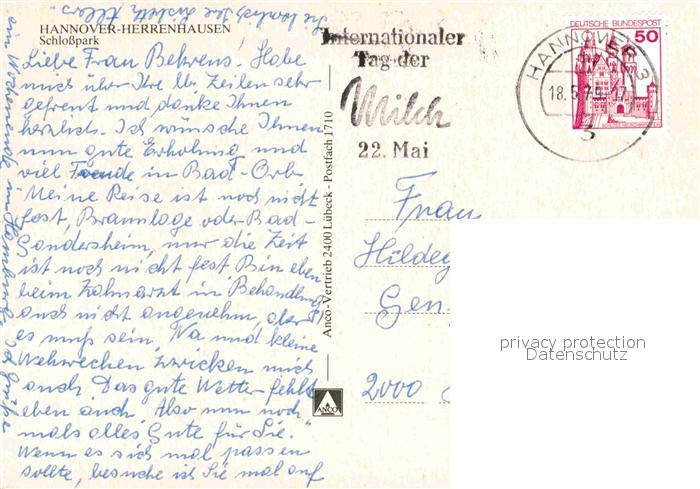 HANNOVER-HERRENHAUSEN
Schloßpark
Liebe Frau Behrens! Habe
mich über Ihre lb. Zeilen sehr
gefreut und danke Ihnen
herzlich. Ich wünsche Ihnen
nun gute Erholung und
viel Freude in Bad-Orb.
Meine Reise ist noch nicht
fest, Braunlage oder Bad-
Gandersheim, nur die Zeit
ist noch nicht fest. Bin eben
beim Zahnarzt in Behandlung
auch nicht angenehm, aber
es muß sein. Na und kleine
Wehwehchen zwicken mich
auch. Das gute Wetter fehlt
eben auch. Also nun noch
mals alles Gute für Sie.
Wenn es sich mal passen
sollte, besuche ich Sie mal auf
ein Wochenende in Hamburg. Ich grüße
Sie herzlich Ihre
Anco-Vertrieb 2400 Lübeck - Postfach 1710
ANCO
Internationaler
Tag der
Milch
22. Mai
HANNOVER
18.5.79-17
3
DEUTSCHE BUNDESPOST
50
Frau
Hildeg
Gen
2000
privacy protection
Datenschutz